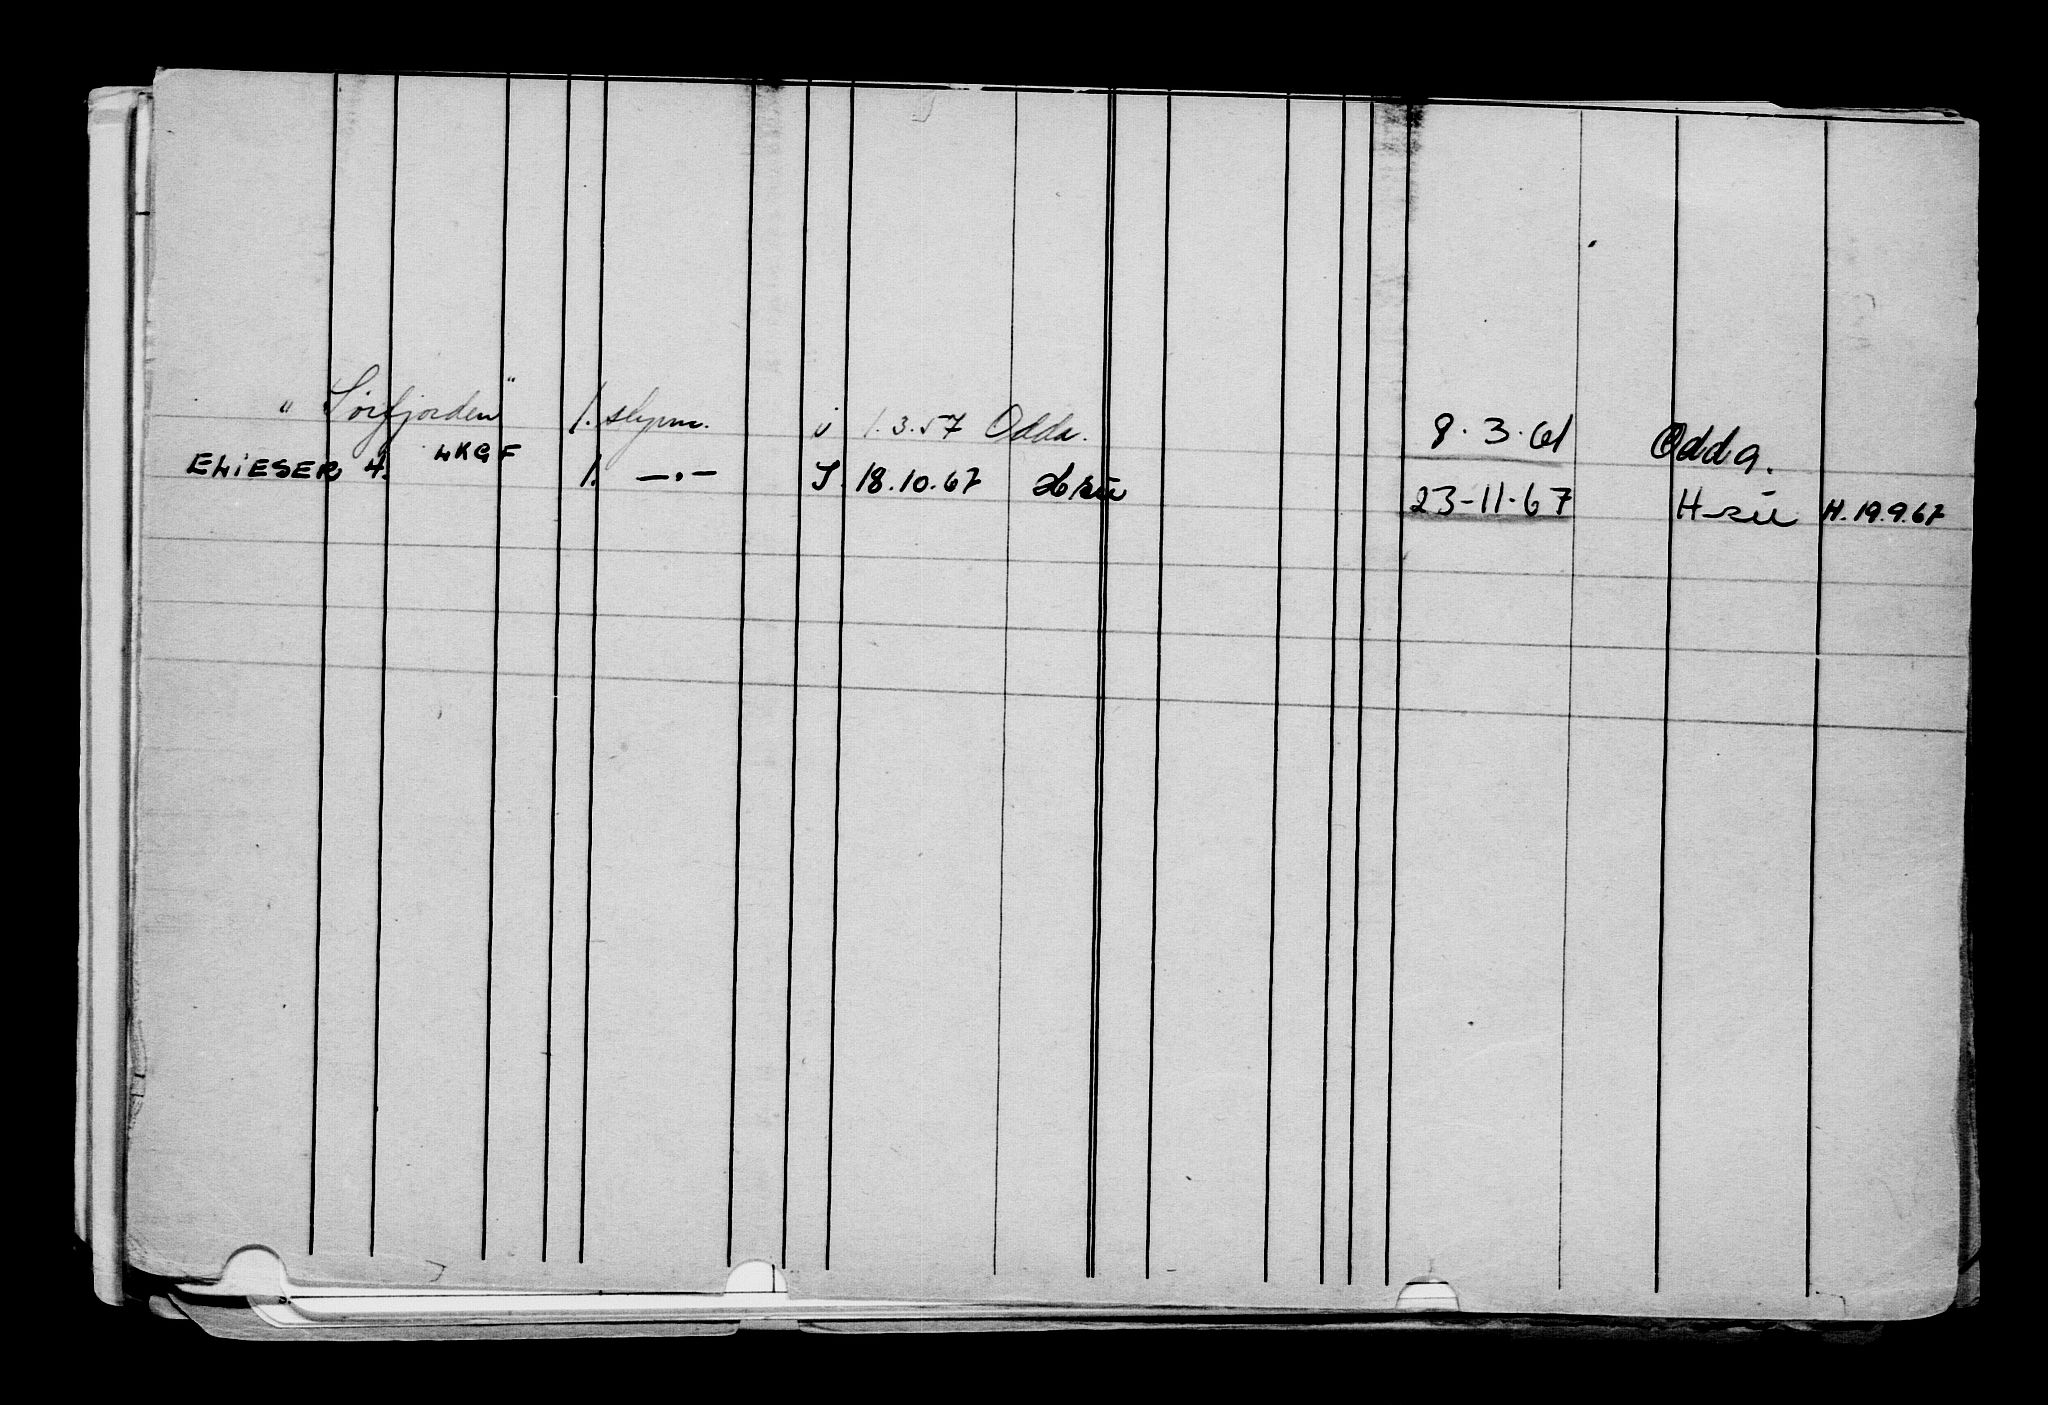 " Sörfjorden" 1. styrm. i 1.3.57 Odda. 8.3.61 Odda.
ELIESER 4. LKGF 1. —.— I. 18.10.67 23-11.67 H. 19.9.67